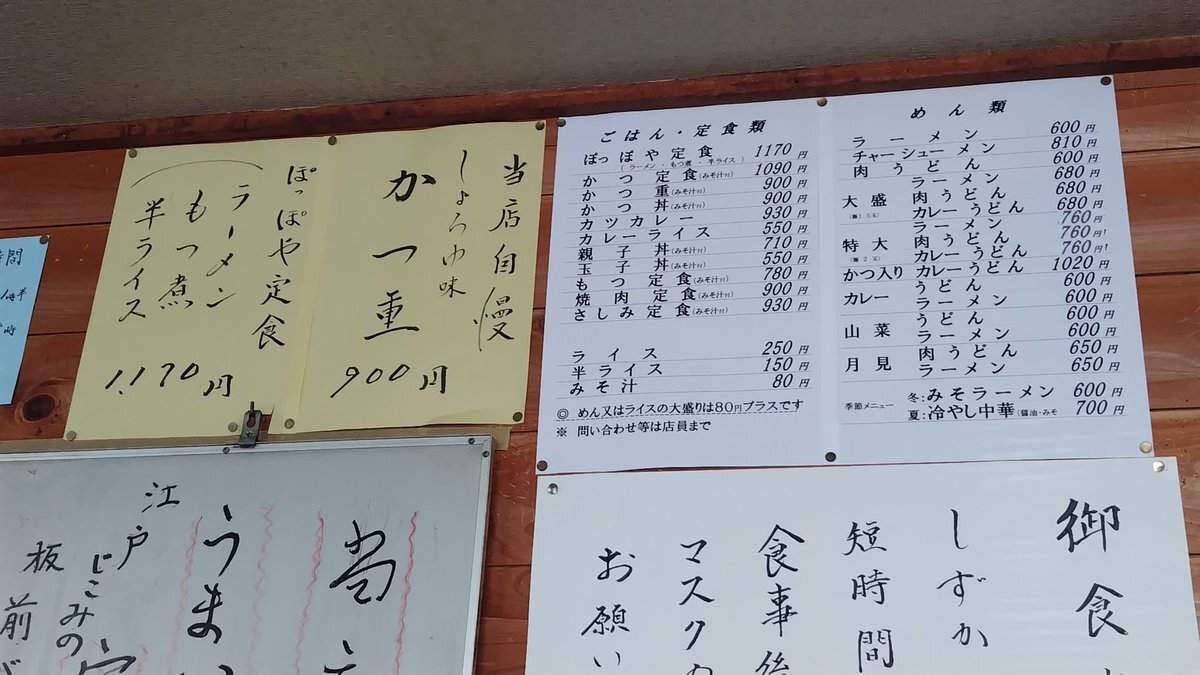 当店自慢
しょうゆ味
かつ重
900円
ぽっぽや定食
(ラーメン
もつ煮
半ライス
1.170円
ごはん・定食類
ぽっぽや定食 1170円
(ラーメン・もつ煮・半ライス)
かつ定食(みそ汁付) 1090円
かつ重(みそ汁付) 900円
かつ丼(みそ汁付) 900円
カツカレー 930円
カレーライス 550円
親子丼(みそ汁付) 710円
玉子丼(みそ汁付) 550円
もつ定食(みそ汁付) 780円
焼肉定食(みそ汁付) 900円
さしみ定食(みそ汁付) 930円
ライス 250円
半ライス 150円
みそ汁 80円
◎ めん又はライスの大盛りは80円プラスです
※ 問い合わせ等は店員まで
めん類
ラーメン 600円
チャーシューメン 810円
肉うどん 600円
大盛 ラーメン 680円
(麺1.5玉) 肉うどん 680円
カレーうどん 680円
特大 ラーメン 760円
(麺2玉) 肉うどん 760円
カレーうどん 760円
かつ入り カレーうどん 1020円
カレー うどん 600円
ラーメン 600円
山菜 うどん 600円
ラーメン 600円
月見 肉うどん 650円
ラーメン 650円
季節メニュー 冬:みそラーメン 600円
夏:冷やし中華(醤油・みそ 700円
御食
しずか
短時間
食事後
マスクの
お願い
当
うまい
江戸
じこみの
板前が
時間